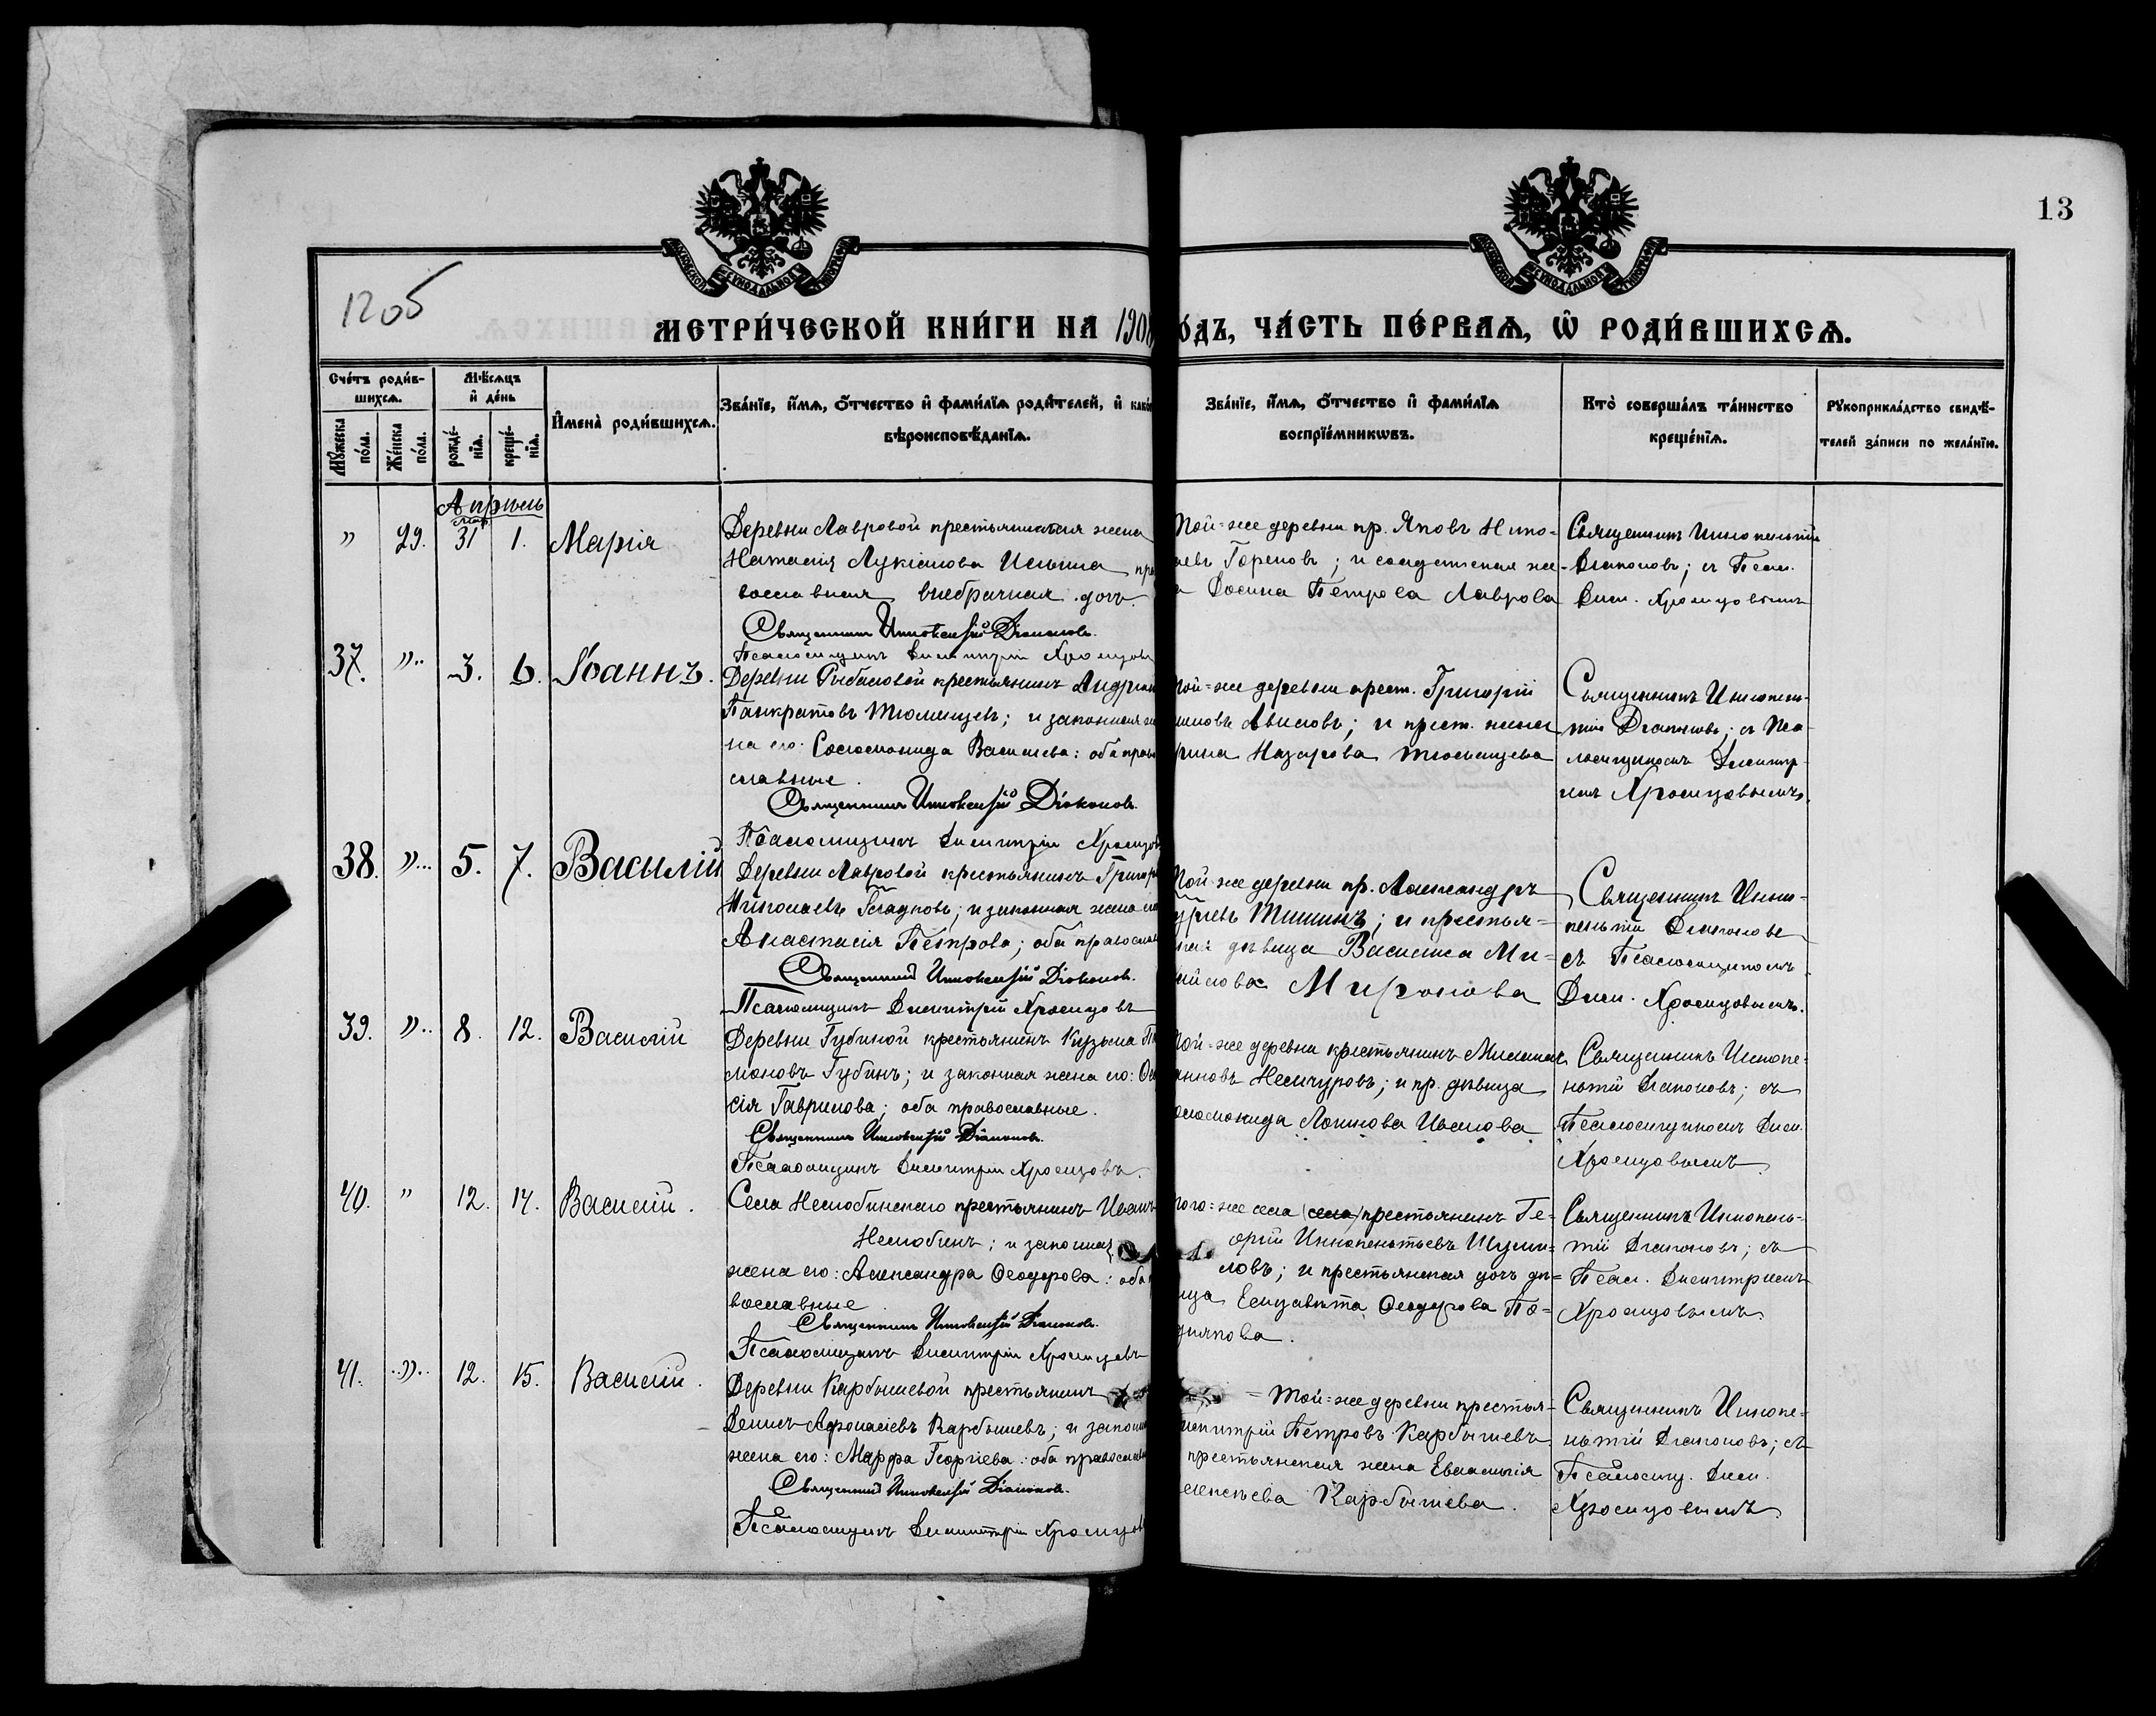 13
1205
МЕТРИ́ЧЕСКОЙ КНИ́ГИ НА 1908
О́ДЪ, ЧА́СТЬ ПЕ́РВАѦ, Ѡ҆ РОДИ́ВШИХСѦ.
Сче́тъ роди́в-
шихсѧ.
Мꙋ́жеска по́ла.
Же́нска по́ла.
Мѣ́сѧцъ
и҆ де́нь
рожде́-
нїѧ.
креще́-
нїѧ.
И҆мена̀ роди́вшихсѧ.
Зва́нїе, и҆́мѧ, ѻ҆́тчество и҆ фами́лїѧ роди́телей, и҆ како́
вѣроисповѣ́данїѧ.
Зва́нїе, и҆́мѧ, ѻ҆́тчество и҆ фами́лїѧ
воспрїе́мникѡвъ.
Кто̀ соверша́лъ та́инство
креще́нїѧ.
Рꙋкоприкла́дство свидѣ́-
телей за́писи по жела́нїю.
Апрѣль
" 29. Мар. 31 1. Марія
Деревни Лавровой крестьянская жена
Наталія Лукіанова Ильина пра
вославная внебрачная дочь.
Священникъ Иннокентій Діаконовъ.
Псаломщикъ Димитрій Хромцовъ
Той-же деревни кр. Яковъ Нико-
аевъ Гореловъ; и солдатская же-
а Доснна Петрова Лаврова
Священникъ Иннокентій
Діаконовъ; съ Псал.
Дим. Хромцовымъ
37. " 3. 6. Іоаннъ.
Деревни Рыбаловой крестьянинъ Андріанъ
Панкратовъ Тюменцевъ; и законная же
на его: Соломонида Васильева: оба право
славные.
Священникъ Иннокентій Діаконовъ.
Псаломщикъ Димитрій Хромцовъ
Той-же деревни крест. Григорій
Авиловъ; и крест. жена
рина Назарова Тюменцева
Священникъ Иннокен-
тій Діаконовъ; съ Пса-
ломщикомъ Димитр-
іемъ Хромцовымъ.
38. " 5. 7. Василій
Деревни Лавровой крестьянинъ Григорі
Николаевъ Гладковъ; и законная жена его
Анастасія Петрова; оба православ
Священникъ Иннокентій Діаконовъ.
Псаломщикъ Димитрій Хромцовъ
Той-же деревни кр. Александръ
Тишинъ; и крестья-
ская дѣвица Василиса Ми-
хайлова Миронова
Священникъ Инно-
кентій Діаконовъ
съ Псаломщикомъ
Дим. Хромцовымъ.
39. " 8. 12. Василій
Деревни Губиной крестьянинъ Кузьма Пи
моновъ Губинъ; и законная жена его: Ѳео
сія Гаврилова; оба православные.
Священникъ Иннокентій Діаконовъ.
Псаломщикъ Димитрій Хромцовъ.
Той-же деревни крестьянинъ Михаилъ
анновъ Немчуровъ; и кр. дѣвица
оломонида Логинова Иванова
Священникъ Инноке-
нтій Діаконовъ; съ
Псаломщикомъ Дим.
Хромцовымъ
40. " 12. 14. Василій.
Села Нелюбинскаго крестьянинъ Иванъ
Нелюбинъ; и законная
жена его: Александра Ѳеодорова: оба
вославные
Священникъ Иннокентій Діаконовъ.
Псаломщикъ Димитрій Хромцовъ
того-же села (села) крестьянинъ Ге-
оргій Иннокентьевъ Шуми-
ловъ; и крестьянская дочь дѣ-
ица Елизавета Ѳеодорова По-
дъякова.
Священникъ Иннокен-
тій Діаконовъ; съ
Псал. Димитріемъ
Хромцовымъ.
41. " 12. 15. Василій.
Деревни Карбышевой крестьянинъ
Денисъ Афонасіевъ Карбышевъ; и законн
жена его: Марфа Георгіева: оба православн
Священникъ Иннокентій Діаконовъ.
Псаломщикъ Димитрій Хромцовъ
Той-же деревни крестья-
имитрій Петровъ Карбышевъ
крестьянская жена Евлампія
лексѣева Карбышева.
Священникъ Инноке-
нтій Діаконовъ; съ
Псаломщ. Дим.
Хромцовымъ